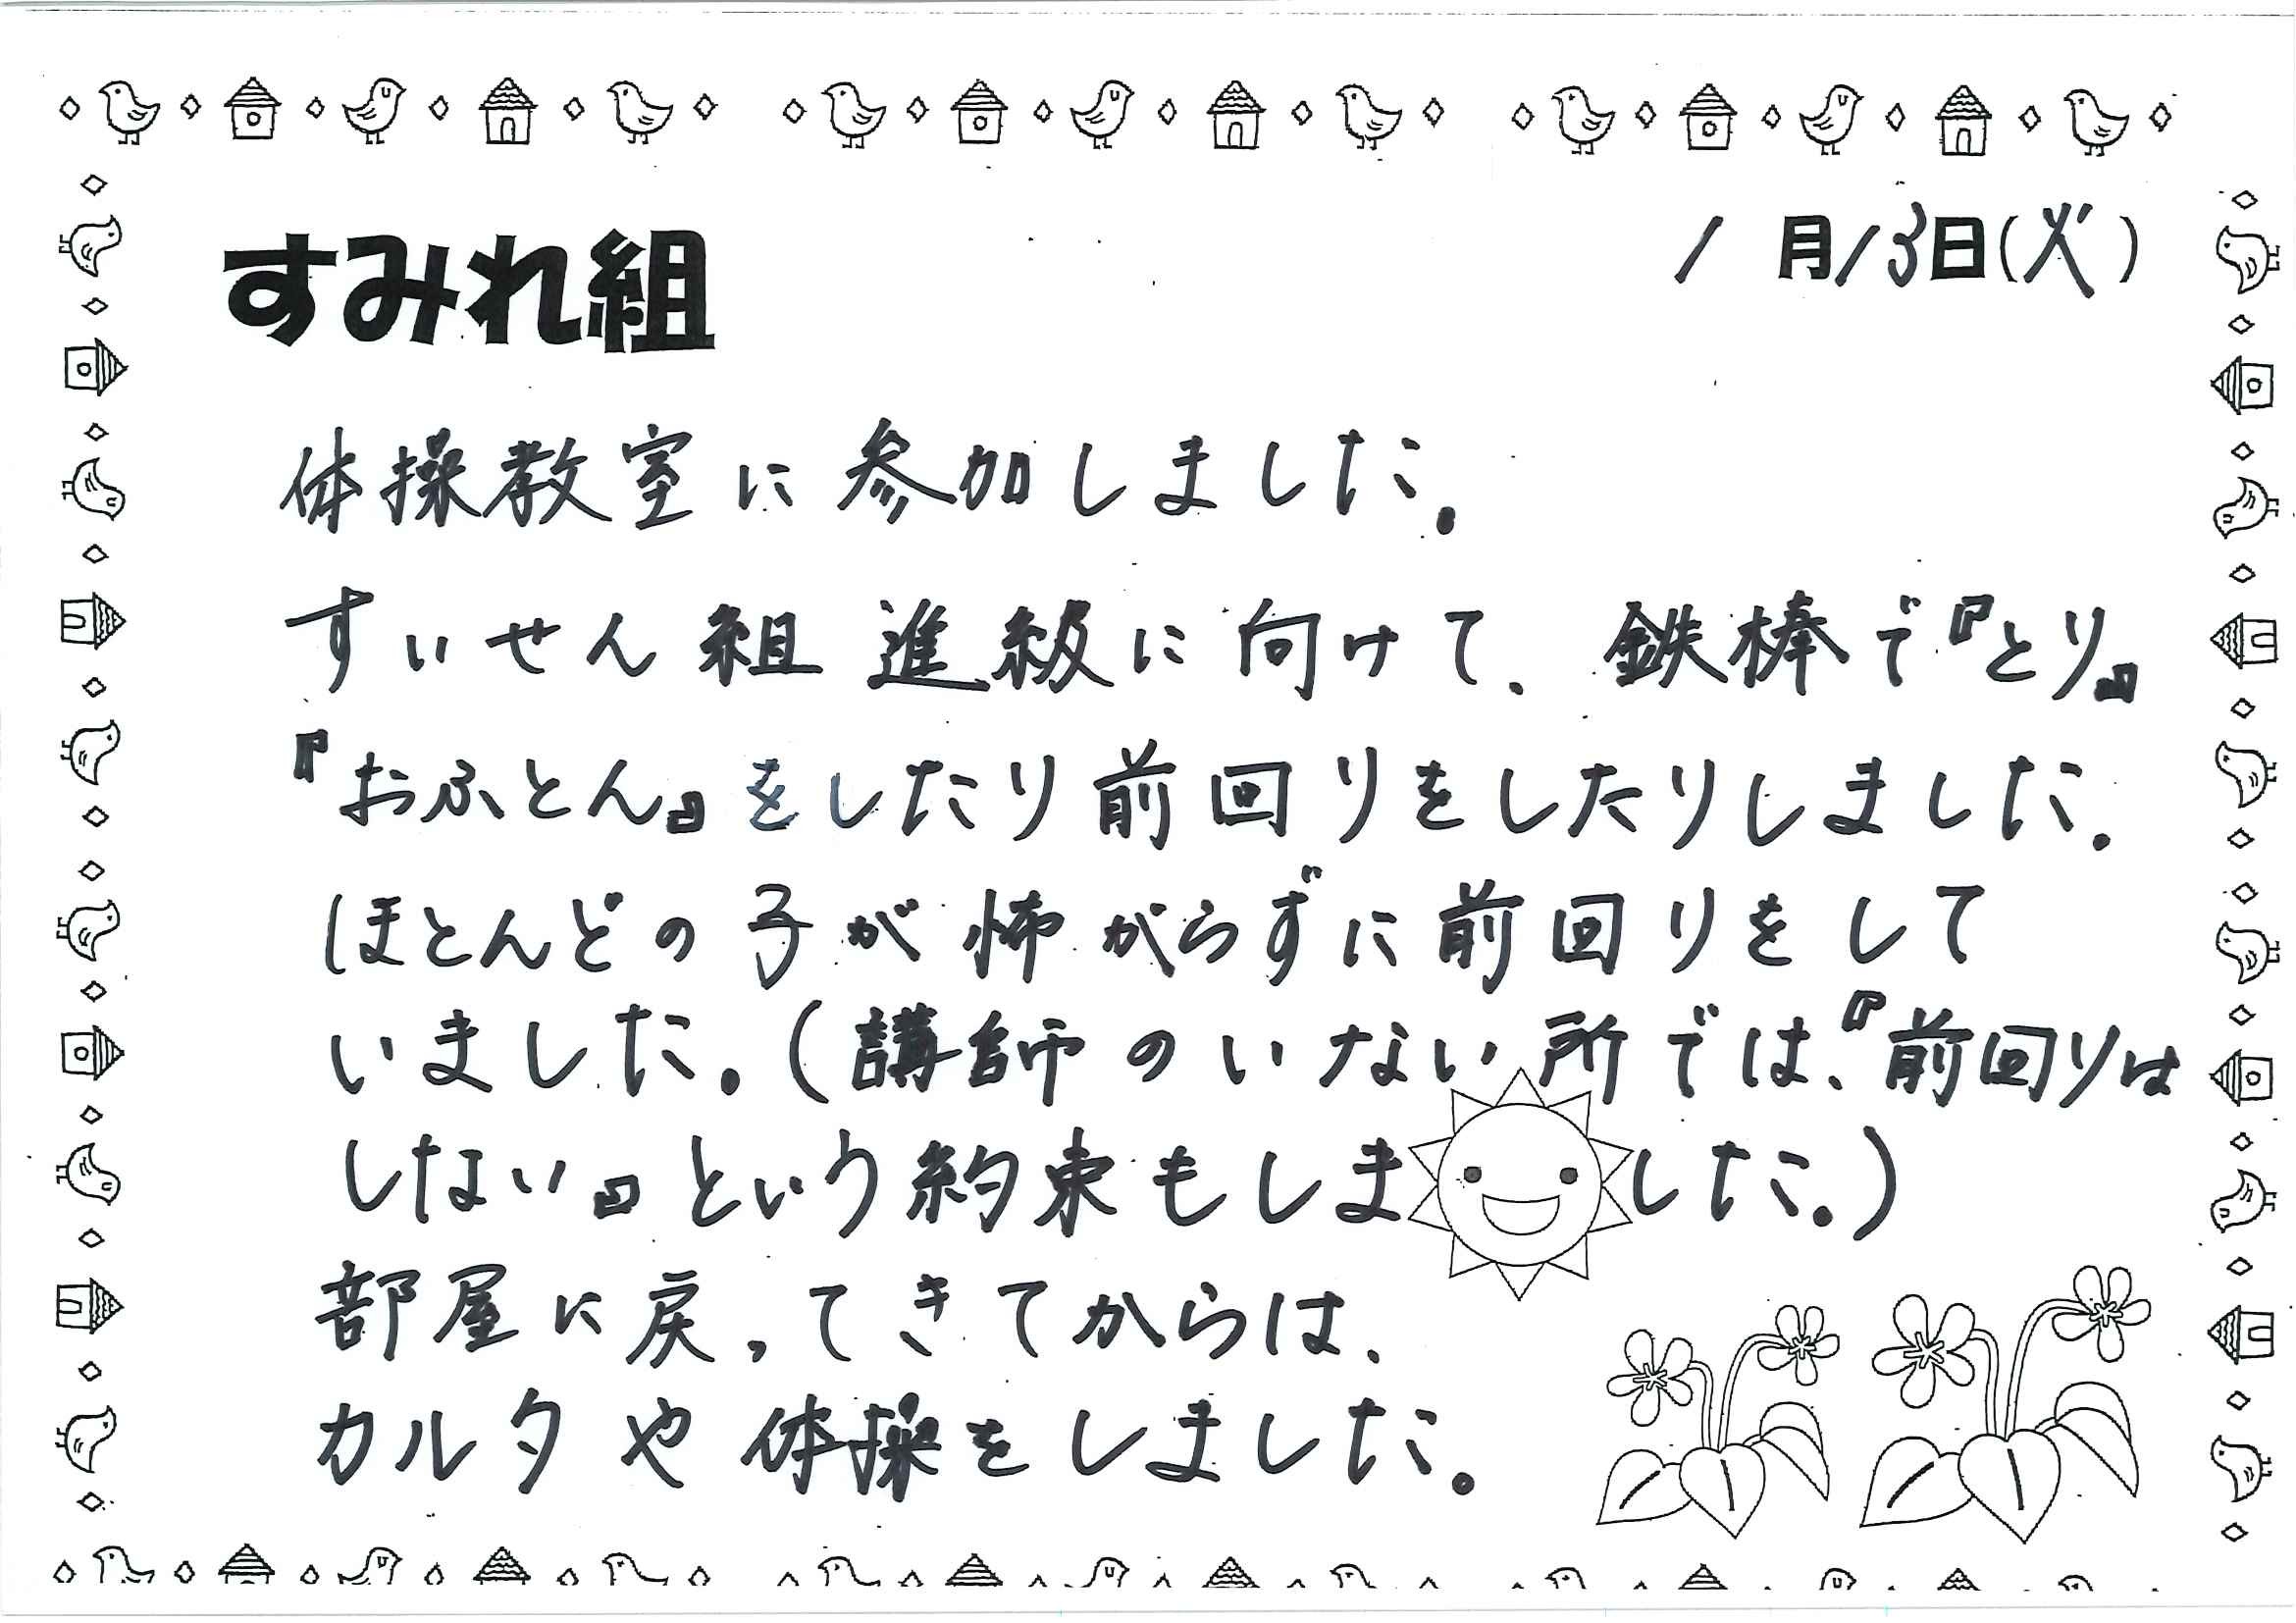 すみれ組
1月13日(火)
体操教室に参加しました。
すいせん組進級に向けて、鉄棒で『とり』
『おふとん』をしたり前回りをしたりしました。
ほとんどの子が怖がらずに前回りをして
いました。(講師のいない所では、『前回りは
しない』という約束もしました。)
部屋に戻ってきてからは、
カルタや体操をしました。